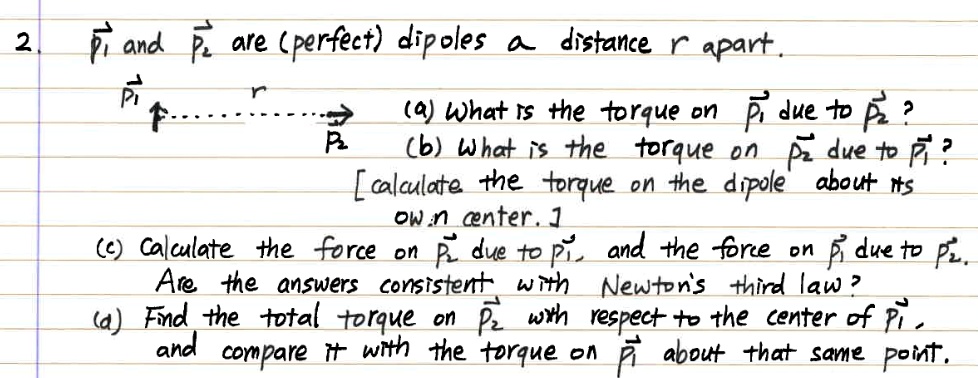 2. p⃗₁ and p⃗₂ are (perfect) dipoles a distance r apart.
p⃗₁ r
p⃗₂
(a) What is the torque on p⃗₁ due to p⃗₂ ?
(b) What is the torque on p⃗₂ due to p⃗₁ ?
[calculate the torque on the dipole about its
own center.]
(c) Calculate the force on p⃗₂ due to p⃗₁, and the force on p⃗₁ due to p⃗₂.
Are the answers consistent with Newton's third law?
(d) Find the total torque on p⃗₂ with respect to the center of p⃗₁,
and compare it with the torque on p⃗₁ about that same point.